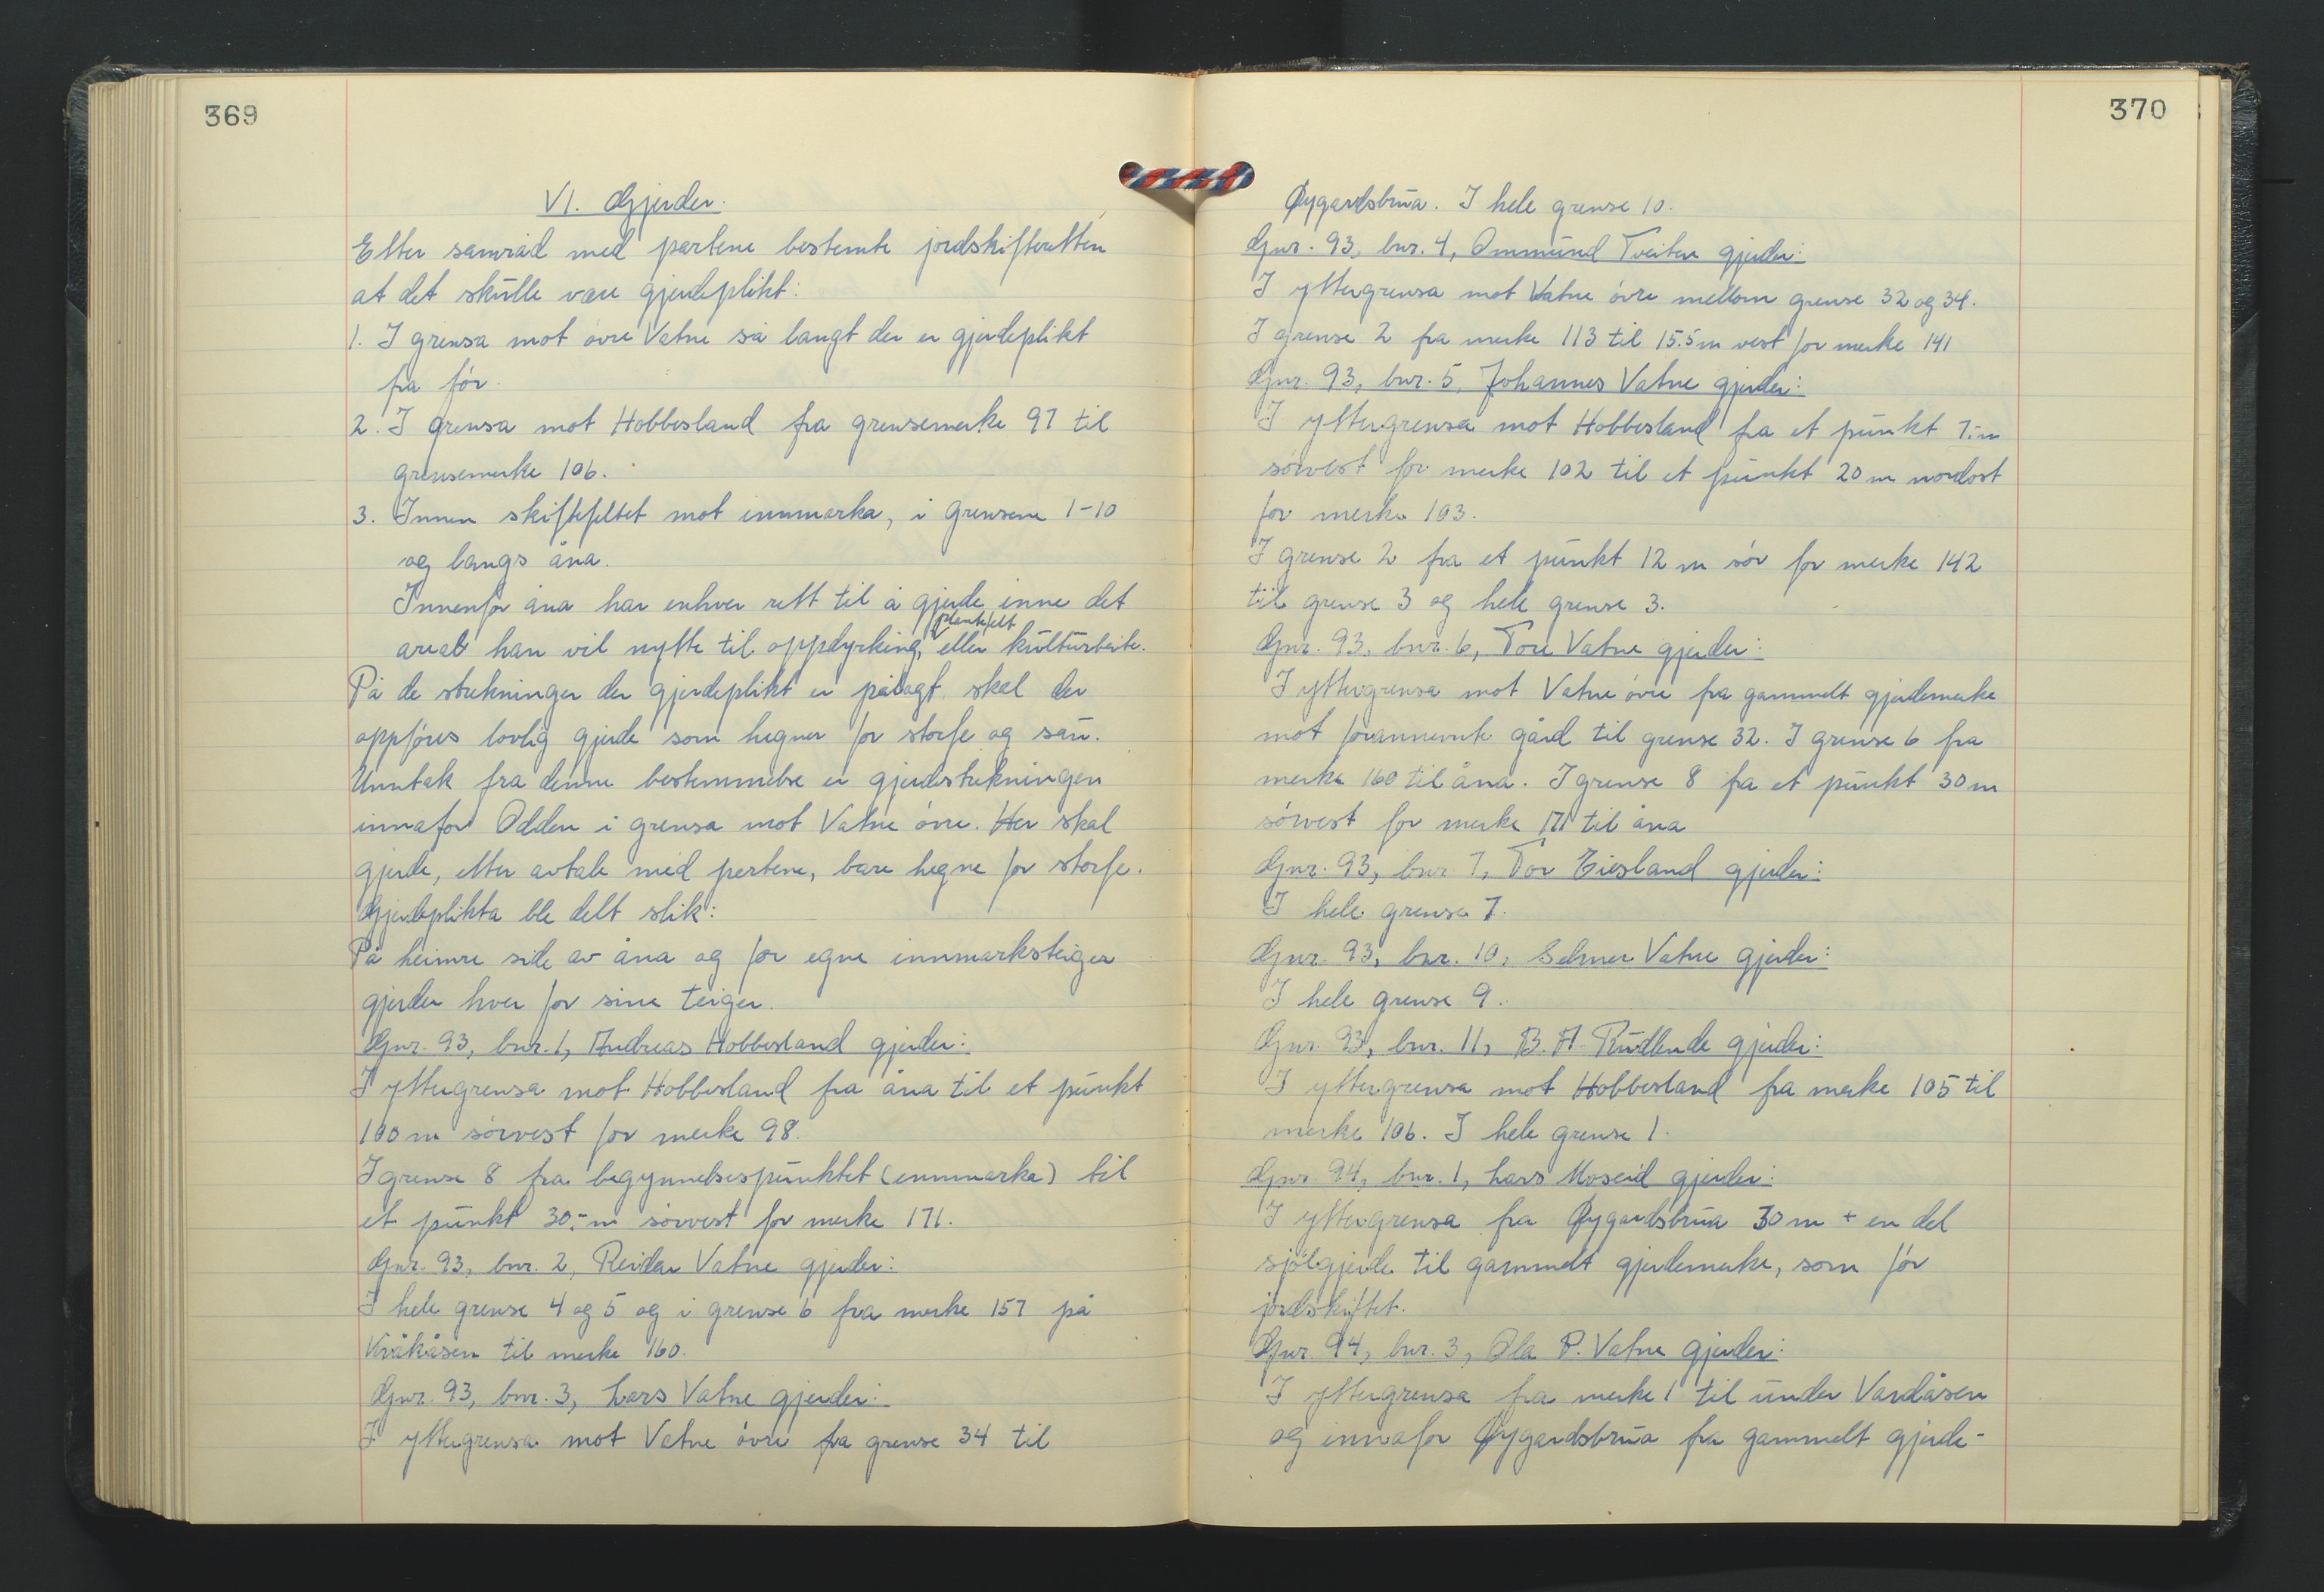 369
VI. Gjerder.
Etter samråd med partene bestemte jordskifteretten
at det skulle være gjerdeplikt:
1. I grensa mot øvre Vatne så langt der er gjerdeplikt
fra før.
2. I grensa mot Hobbesland fra grensemerke 97 til
grensemerke 106.
3. Innen skiftefeltet mot innmarka, i grensene 1-10
og langs åna.
Innenfor åna har enhver rett til å gjerde inne det
plantefelt
areal han vil nytte til oppdyrking, eller kulturbeite.
På de strekninger der gjerdeplikt er pålagt skal der
oppføres lovlig gjerde som hegner for storfe og sau.
Unntak fra denne bestemmelse er gjerdestrekningen
innafor Odden i grensa mot Vatne øvre. Her skal
gjerde, etter avtale med partene, bare hegne for storfe.
Gjerdeplikta ble delt slik:
På heimre side av åna og for egne innmarksteiger
gjerder hver for sine teiger.
Gnr. 93, bnr. 1, Andreas Hobbesland gjerder:
I yttergrensa mot Hobbesland fra åna til et punkt
100 m sørvest for merke 98.
I grense 8 fra begynnelsespunktet (innmarka) til
et punkt 30,- m sørvest for merke 171.
Gnr. 93, bnr. 2, Reidar Vatne gjerder:
I hele grense 4 og 5 og i grense 6 fra merke 157 på
Kråkåsen til merke 160.
Gnr. 93, bnr. 3, Lars Vatne gjerder:
I yttergrensa mot Vatne øvre fra grense 34 til
370
Øygardsbrua. I hele grense 10.
Gnr. 93, bnr. 4, Ommund Tveiten gjerder:
I yttergrensa mot Vatne øvre mellom grense 32 og 34.
I grense 2 fra merke 113 til 15.5 m vest for merke 141
Gnr. 93, bnr. 5, Johannes Vatne gjerder:
I yttergrensa mot Hobbesland fra et punkt 7,- m
sørvest for merke 102 til et punkt 20 m nordost
for merke 103.
I grense 2 fra et punkt 12 m sør for merke 142
til grense 3 og hele grense 3.
Gnr. 93, bnr. 6, Tore Vatne gjerder:
I yttergrensa mot Vatne øvre fra gammelt gjerdemerke
mot forannevnte gård til grense 32. I grense 6 fra
merke 160 til åna. I grense 8 fra et punkt 30 m
sørvest for merke 171 til åna
Gnr. 93, bnr. 7, Tor Eiesland gjerder:
I hele grense 7.
Gnr. 93, bnr. 10, Selmer Vatne gjerder:
I hele grense 9.
Gnr. 93, bnr. 11, B. A. Rudlende gjerder:
I yttergrensa mot Hobbesland fra merke 105 til
merke 106. I hele grense 1.
Gnr. 94, bnr. 1, Lars Moseid gjerder:
I yttergrensa fra Øygardsbrua 30 m + en del
sjølgjerde til gammelt gjerdemerke, som før
jordskiftet.
Gnr. 94, bnr. 3, Ola P. Vatne gjerder:
I yttergrensa fra merke 1 til under Vardåsen
og innafor Øygardsbrua fra gammelt gjerde-